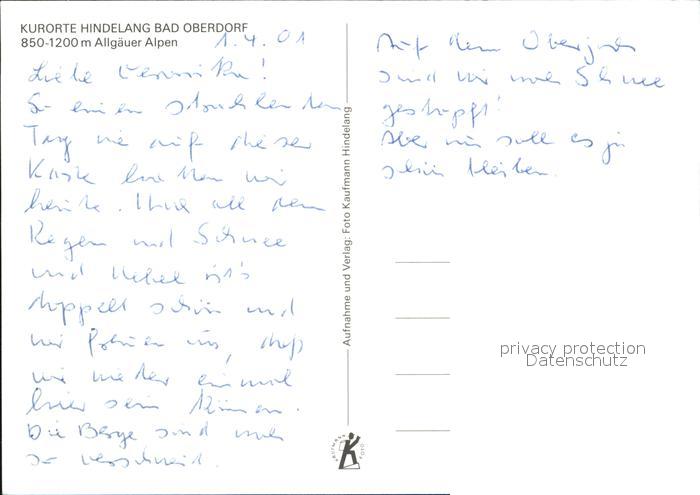 KURORTE HINDELANG BAD OBERDORF
850-1200 m Allgäuer Alpen
1.4.01
Liebe Veronika!
So einen strahlenden
Tag wie auf dieser
Karte hatten wir
heute. Und all dem
Regen und Schnee
und Nebel ist's
doppelt schön und
wir freuen uns, daß
wir wieder einmal
hier sein können.
Die Berge sind noch
so verschneit.
Aufnahme und Verlag: Foto Kaufmann Hindelang
Auf dem Oberjoch
sind wir noch Schnee
gestapft!
Aber nun soll es ja
schön bleiben.
KAUFMANN FOTO
privacy protection
Datenschutz